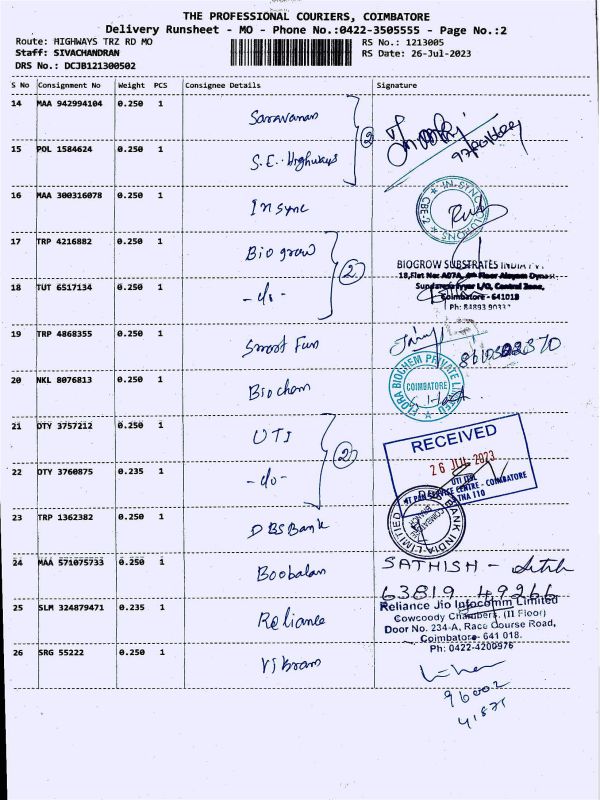 THE PROFESSIONAL COURIERS, COIMBATORE
Delivery Runsheet - MO - Phone No.:0422-3505555 - Page No.:2
Route: HIGHWAYS TRZ RD MO RS No.: 1213005
Staff: SIVACHANDRAN RS Date: 26-Jul-2023
DRS No.: DCJB121300502
S No Consignment No Weight PCS Consignee Details Signature
14 MAA 942994104 0.250 1 Saravanan
2
15 POL 1584624 0.250 1 S.E. Highways
16 MAA 300316078 0.250 1 Insync
IN-SYNC SOLUTIONS CBE-2
17 TRP 4216882 0.250 1 Bio grow
2
BIOGROW SUBSTRATES INDIA
18,Flat No: A07A, Floor
18 TUT 6517134 0.250 1 -do-
L/O, Central Zone,
Coimbatore - 641018
Ph:
19 TRP 4868355 0.250 1 Smart Fun
20 NKL 8076813 0.250 1 Biochem
FLORA BIOCHEM PRIVATE LIMITED COIMBATORE
21 OTY 3757212 0.250 1 UTI
2
RECEIVED
26 JUL 2023
22 OTY 3760875 0.235 1 -do-
CENTRE - COIMBATORE
23 TRP 1362382 0.250 1 DBS Bank
BANK INDIA LIMITED
24 MAA 571075733 0.250 1 Boobalan SATHISH -
63819 49266
25 SLM 324879471 0.235 1 Reliance Reliance Jio Infocomm Limited
Cowcoody Chambers, (II Floor)
Door No. 234-A, Race Course Road,
Coimbatore- 641 018.
Ph: 0422-4200976
26 SRG 55222 0.250 1 Vikram
96002
41871